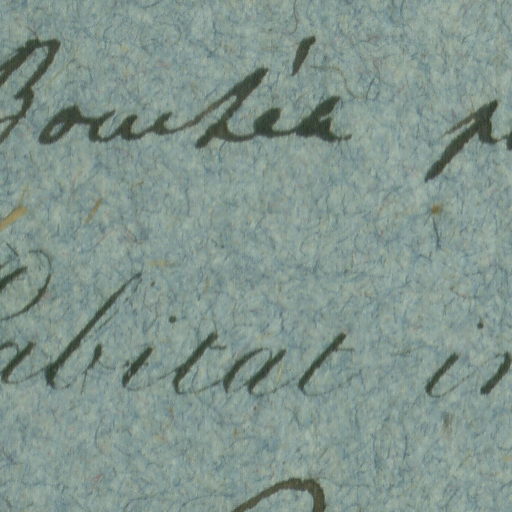 Boursée p
abitat in